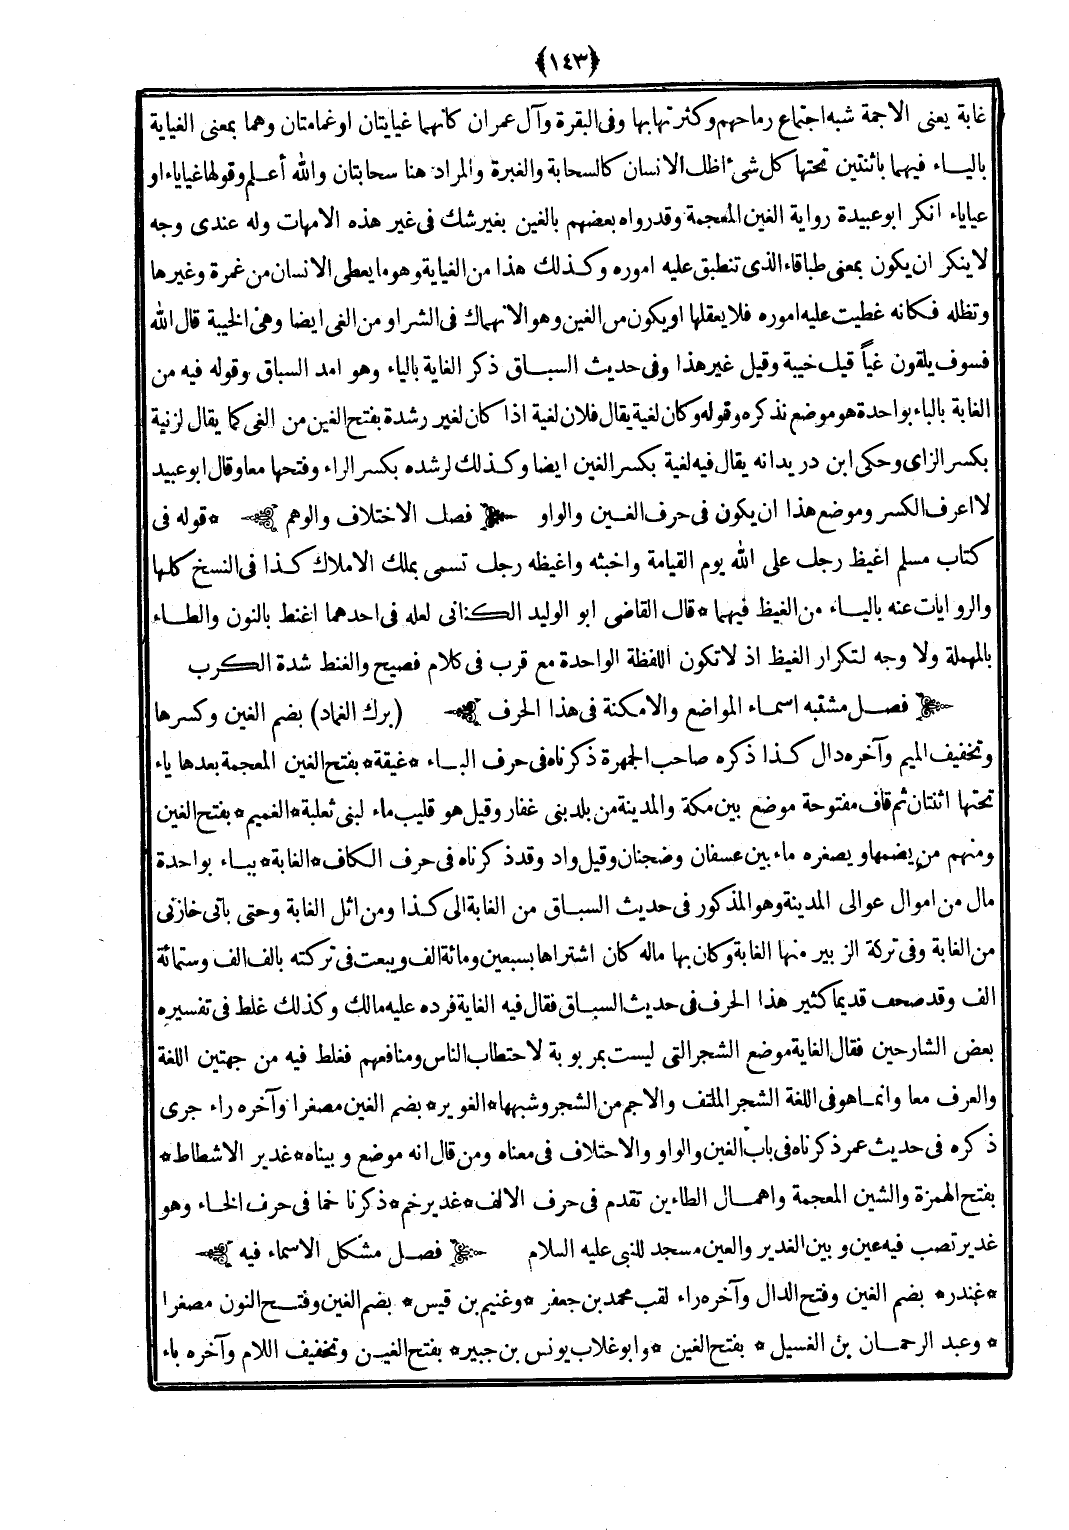 ﴿١٤٣﴾
غابة يعنى الاجمة شبه اجتماع رماحهم وكثرتها بها وفى البقرة وآل عمران كأنهما غيايتان او غمامتان وهما بمعنى الغياية
بالياء فيهما باثنتين تحتها كل شئ اظل الانسان كالسحابة والغبرة والمراد هنا سحابتان والله أعلم وقولها غياياء او
عياياء انكر ابو عبيدة رواية الغين المعجمة وقد رواه بعضهم بالغين بغير شك فى غير هذه الامهات وله عندى وجه
لا ينكر ان يكون بمعنى طباقاء الذى تنطبق عليه اموره وكذلك هذا من الغياية وهو ما يعطى الانسان من غمرة وغيرها
وتظله فكانه غطيت عليه اموره فلا يعقلها او يكون من الغين وهو الانهماك فى الشر او من الغى ايضا وهى الخيبة قال الله
فسوف يلقون غياً قيل خيبة وقيل غير هذا وفى حديث السباق ذكر الغاية بالياء وهو امد السباق وقوله فيه من
الغابة بالباء بواحدة هو موضع نذكره وقوله وكان لغية يقال فلان لغية اذا كان لغير رشدة بفتح الغين من الغى كما يقال لزنية
بكسر الزاى وحكى ابن دريد انه يقال فيه لغية بكسر الغين ايضا وكذلك لرشده بكسر الراء وفتحها معا وقال ابو عبيد
لا اعرف الكسر وموضع هذا ان يكون فى حرف الغين والواو فصل الاختلاف والوهم * قوله فى
كتاب مسلم اغيظ رجل على الله يوم القيامة واخبثه واغيظه رجل تسمى بملك الاملاك كذا فى النسخ كلها
والروايات عنه بالياء من الغيظ فيهما * قال القاضى ابو الوليد الكنانى لعله فى احدهما اغنط بالنون والطاء
بالمهملة ولا وجه لتكرار الغيظ اذ لا تكون اللفظة الواحدة مع قرب فى كلام فصيح والغنط شدة الكرب
فصل مشتبه اسماء المواضع والامكنة فى هذا الحرف (برك الغماد) بضم الغين وكسرها
وتخفيف الميم وآخره دال كذا ذكره صاحب الجمهرة ذكرناه فى حرف الباء * غيقة * بفتح الغين المعجمة بعدها ياء
تحتها اثنتان ثم قاف مفتوحة موضع بين مكة والمدينة من بلد بنى غفار وقيل هو قليب ماء لبنى ثعلبة * الغميم * بفتح الغين
ومنهم من يضمها ويصغره ماء بين عسفان وضجنان وقيل واد وقد ذكرناه فى حرف الكاف * الغابة * بباء بواحدة
مال من اموال عوالى المدينة وهو المذكور فى حديث السباق من الغابة الى كذا ومن اثل الغابة وحتى ياتى خازنى
من الغابة وفى تركة الزبير منها الغابة وكان بها ماله كان اشتراها بسبعين ومائة الف وبيعت فى تركته بالف الف وستمائة
الف وقد صحف قديما كثير هذا الحرف فى حديث السباق فقال فيه الغاية فرده عليه مالك وكذلك غلط فى تفسيره
بعض الشارحين فقال الغاية موضع الشجر التى ليست بمربوبة لاحتطاب الناس ومنافعهم فغلط فيه من جهتين اللغة
والعرف معا وانما هو فى اللغة الشجر الملتف والاجم من الشجر وشبهها * الغوير * بضم الغين مصغرا وآخره راء جرى
ذكره فى حديث عمر ذكرناه فى باب الغين والواو والاحتلاف فى معناه ومن قال انه موضع وبيناه * غدير الاشطاط *
بفتح الهمزة والشين المعجمة واهمال الطاءين تقدم فى حرف الالف * غدير خم * ذكرنا خما فى حرف الخاء وهو
غدير تصب فيه عين وبين الغدير والعين مسجد للنبى عليه السلام فصل مشكل الاسماء فيه
* غندر * بضم الغين وفتح الدال وآخره راء لقب محمد بن جعفر * وغنيم بن قيس * بضم الغين وفتح النون مصغرا
* وعبد الرحمان بن الغسيل * بفتح الغين * وابو غلاب يونس بن جبير * بفتح الغين وتخفيف اللام وآخره باء